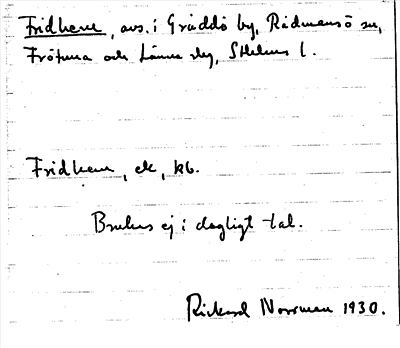 Fridhem, avs. i Gräddö by, Rådmansö sn,
Frötuna och Länna skg, Sthlms l.
Fridhem, ek, kb.
Brukas ej i dagligt tal.
Rickard Norrman 1930.